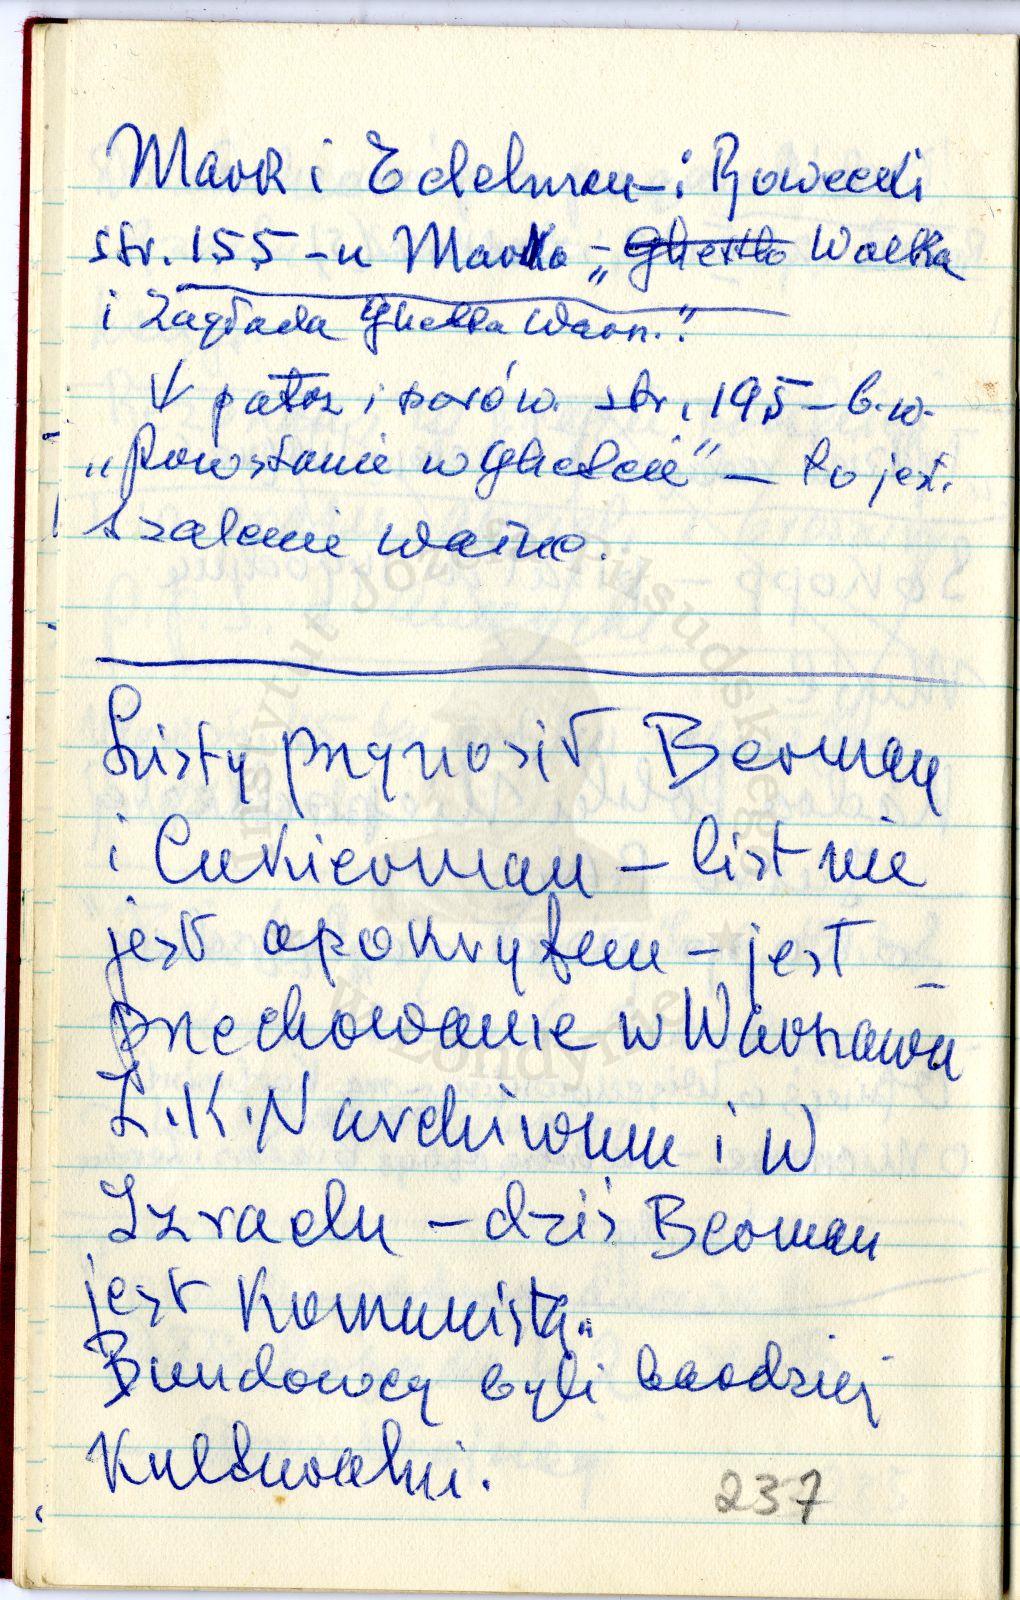 Mark i Edelman i Rowecki
str. 155 – u Marka – „Ghetto Walka
i Zagłada Ghetta Warsz."
V patrz i porów. str. 195 – b. w.
„Powstanie w Ghetcie" – to jest
szalenie ważne.
Listy przynosił Berman
i Cukierman – list nie
jest apokryfem – jest
przechowanie w Warszawie
Ż.K.N archiwum i w
Izraelu – dziś Berman
jest Komunistą.
Bundowcy byli bardziej
Kulturalni.
237
Instytut Józefa Piłsudskiego
w Londynie